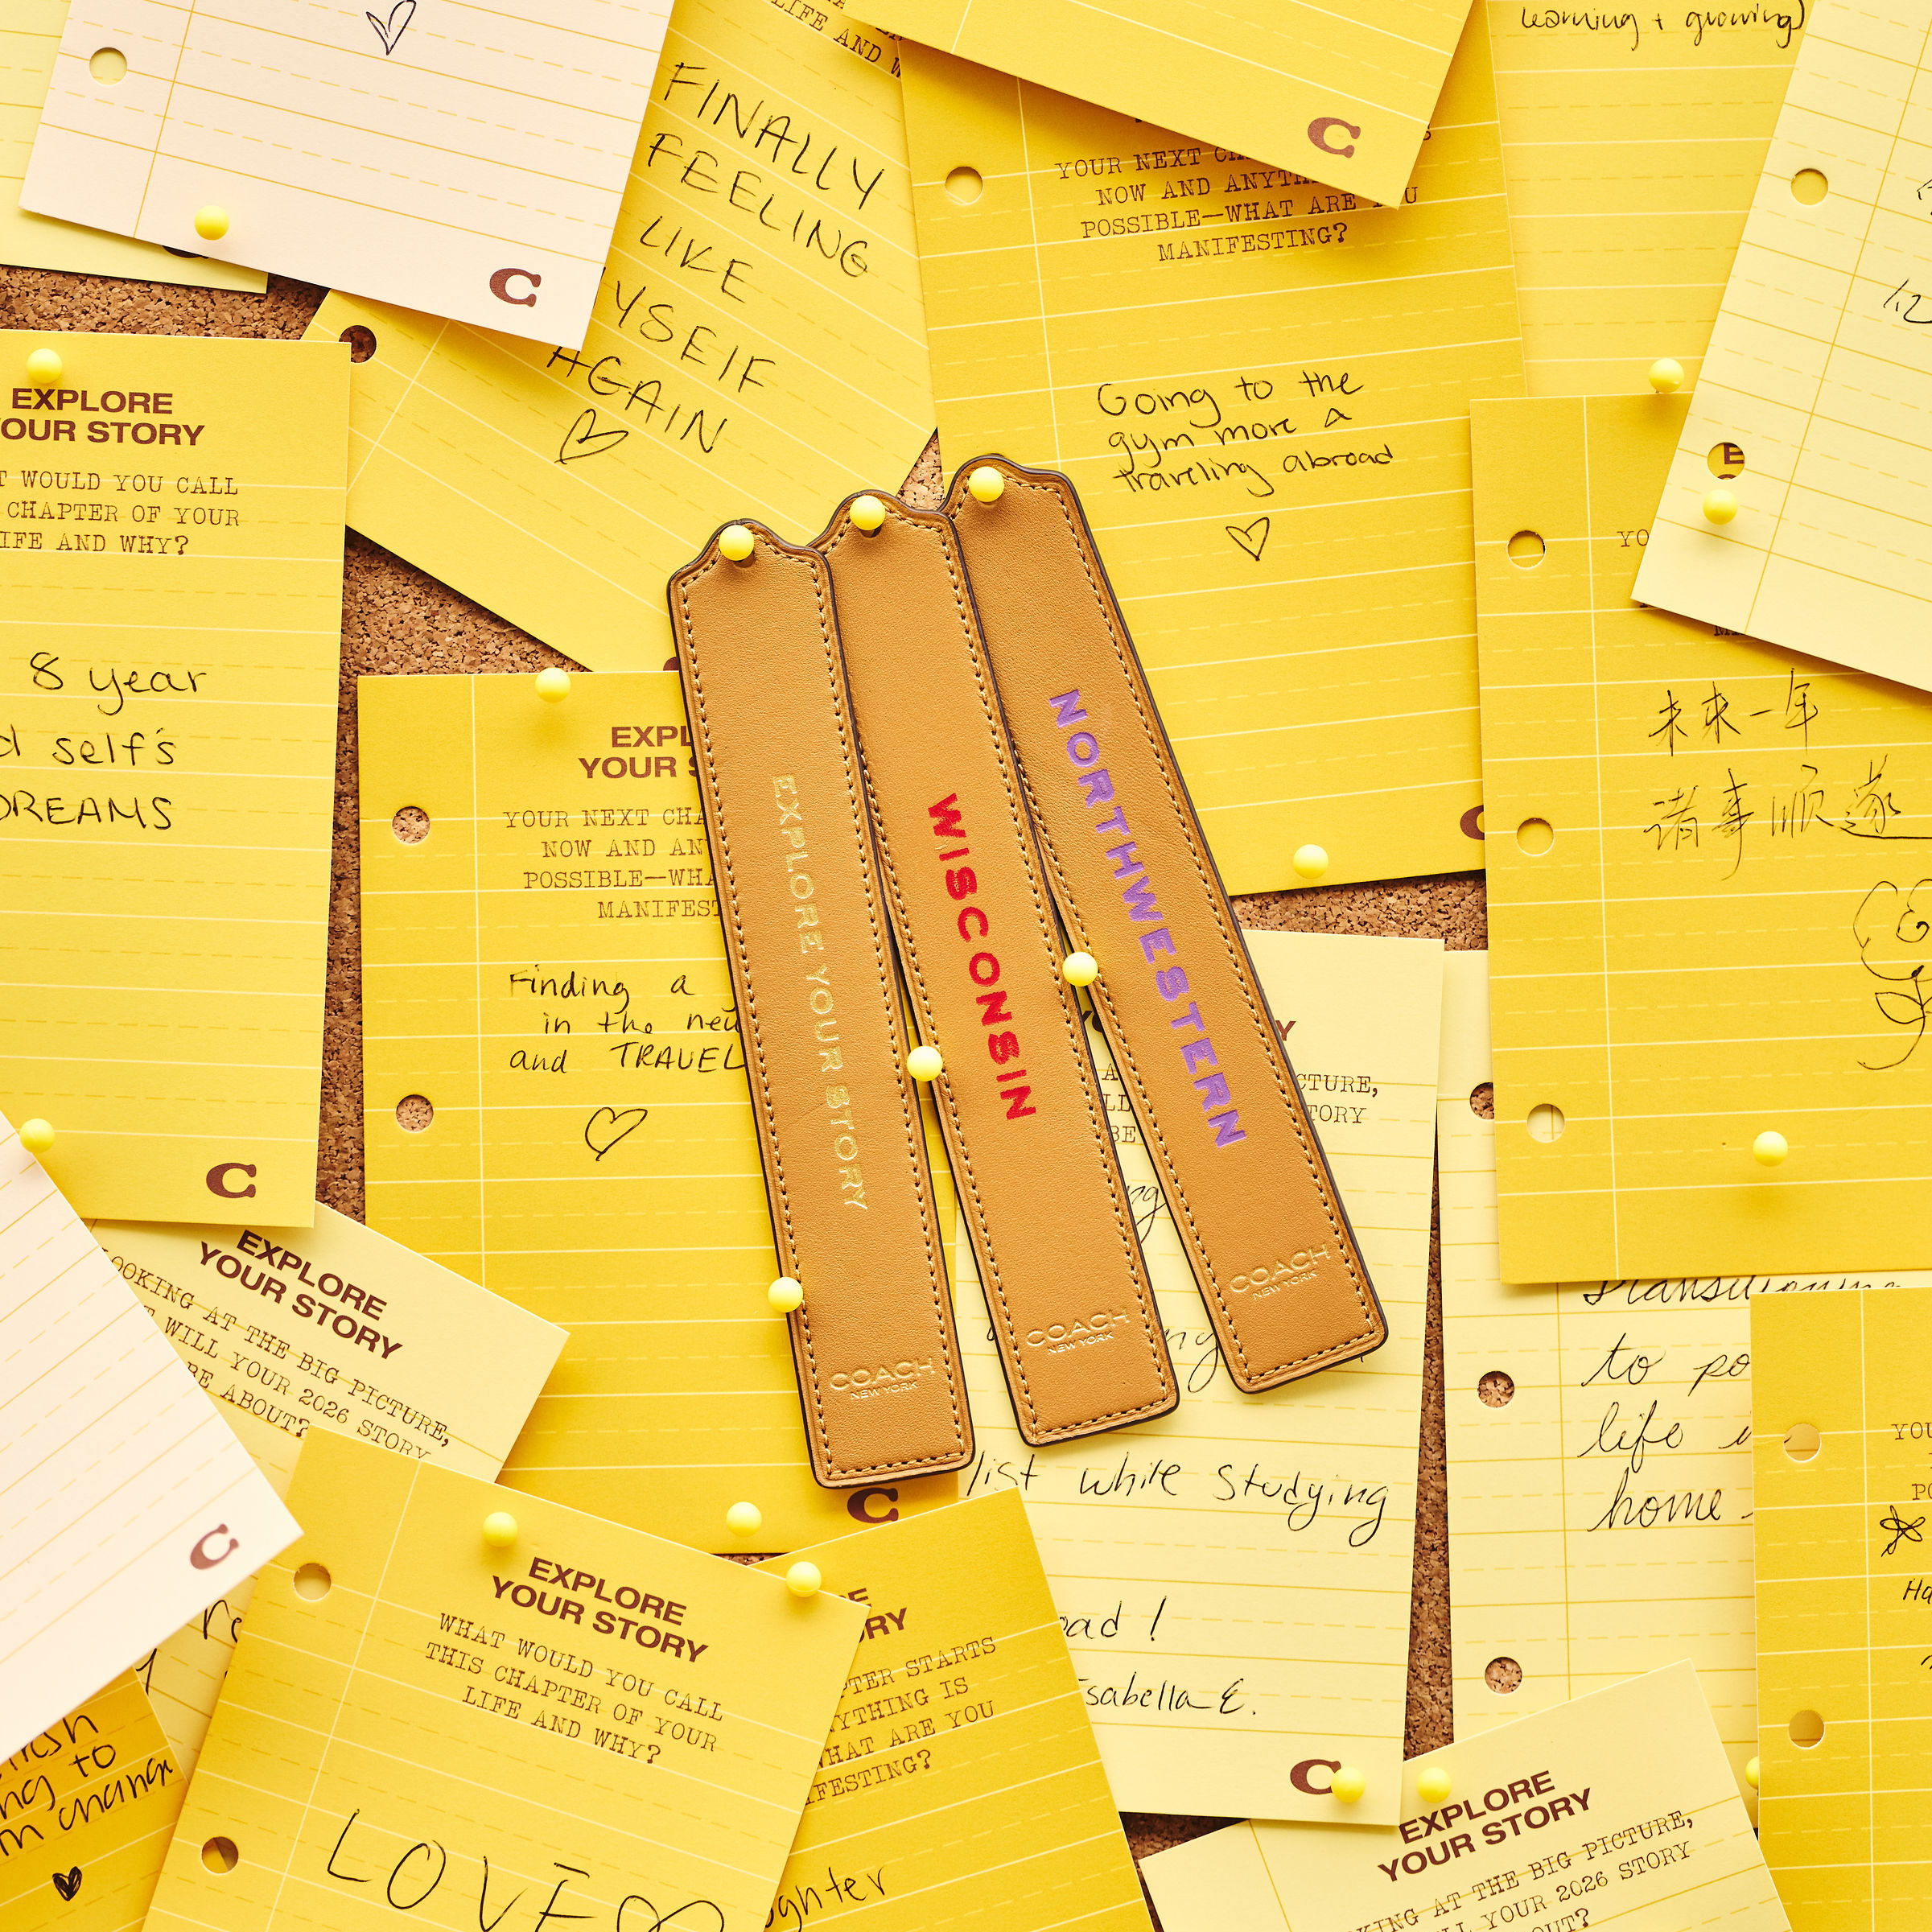 learning + growing)
FINALLY
FEELING
LIKE
YSELF
AGAIN
LIFE AND
C
C
YOUR NEXT
NOW AND
POSSIBLE—WHAT ARE
MANIFESTING?
Going to the
gym more &
traveling abroad
EXPLORE
OUR STORY
WOULD YOU CALL
CHAPTER OF YOUR
IFE AND WHY?
8 year
self's
DREAMS
C
EXPL
YOUR S
YOUR NEXT CHA
NOW AND AN
POSSIBLE—WHA
MANIFEST
Finding a
in the new
and TRAVEL
C
EXPLORE YOUR STORY
COACH
NEW YORK
WISCONSIN
COACH
NEW YORK
NORTHWESTERN
COACH
NEW YORK
未来一年
诸事顺遂
CTURE,
TORY
list while studying
oad!
Isabella E.
C
to
life
home
EXPLORE
YOUR STORY
OOKING AT THE BIG PICTURE,
WILL YOUR 2026 STORY
BE ABOUT?
C
EXPLORE
YOUR STORY
WHAT WOULD YOU CALL
THIS CHAPTER OF YOUR
LIFE AND WHY?
LOVE
ORY
PTER STARTS
NYTHING IS
WHAT ARE YOU
IFESTING?
ghter
to
EXPLORE
YOUR STORY
KING AT THE BIG PICTURE,
YOUR 2026 STORY
OUT?